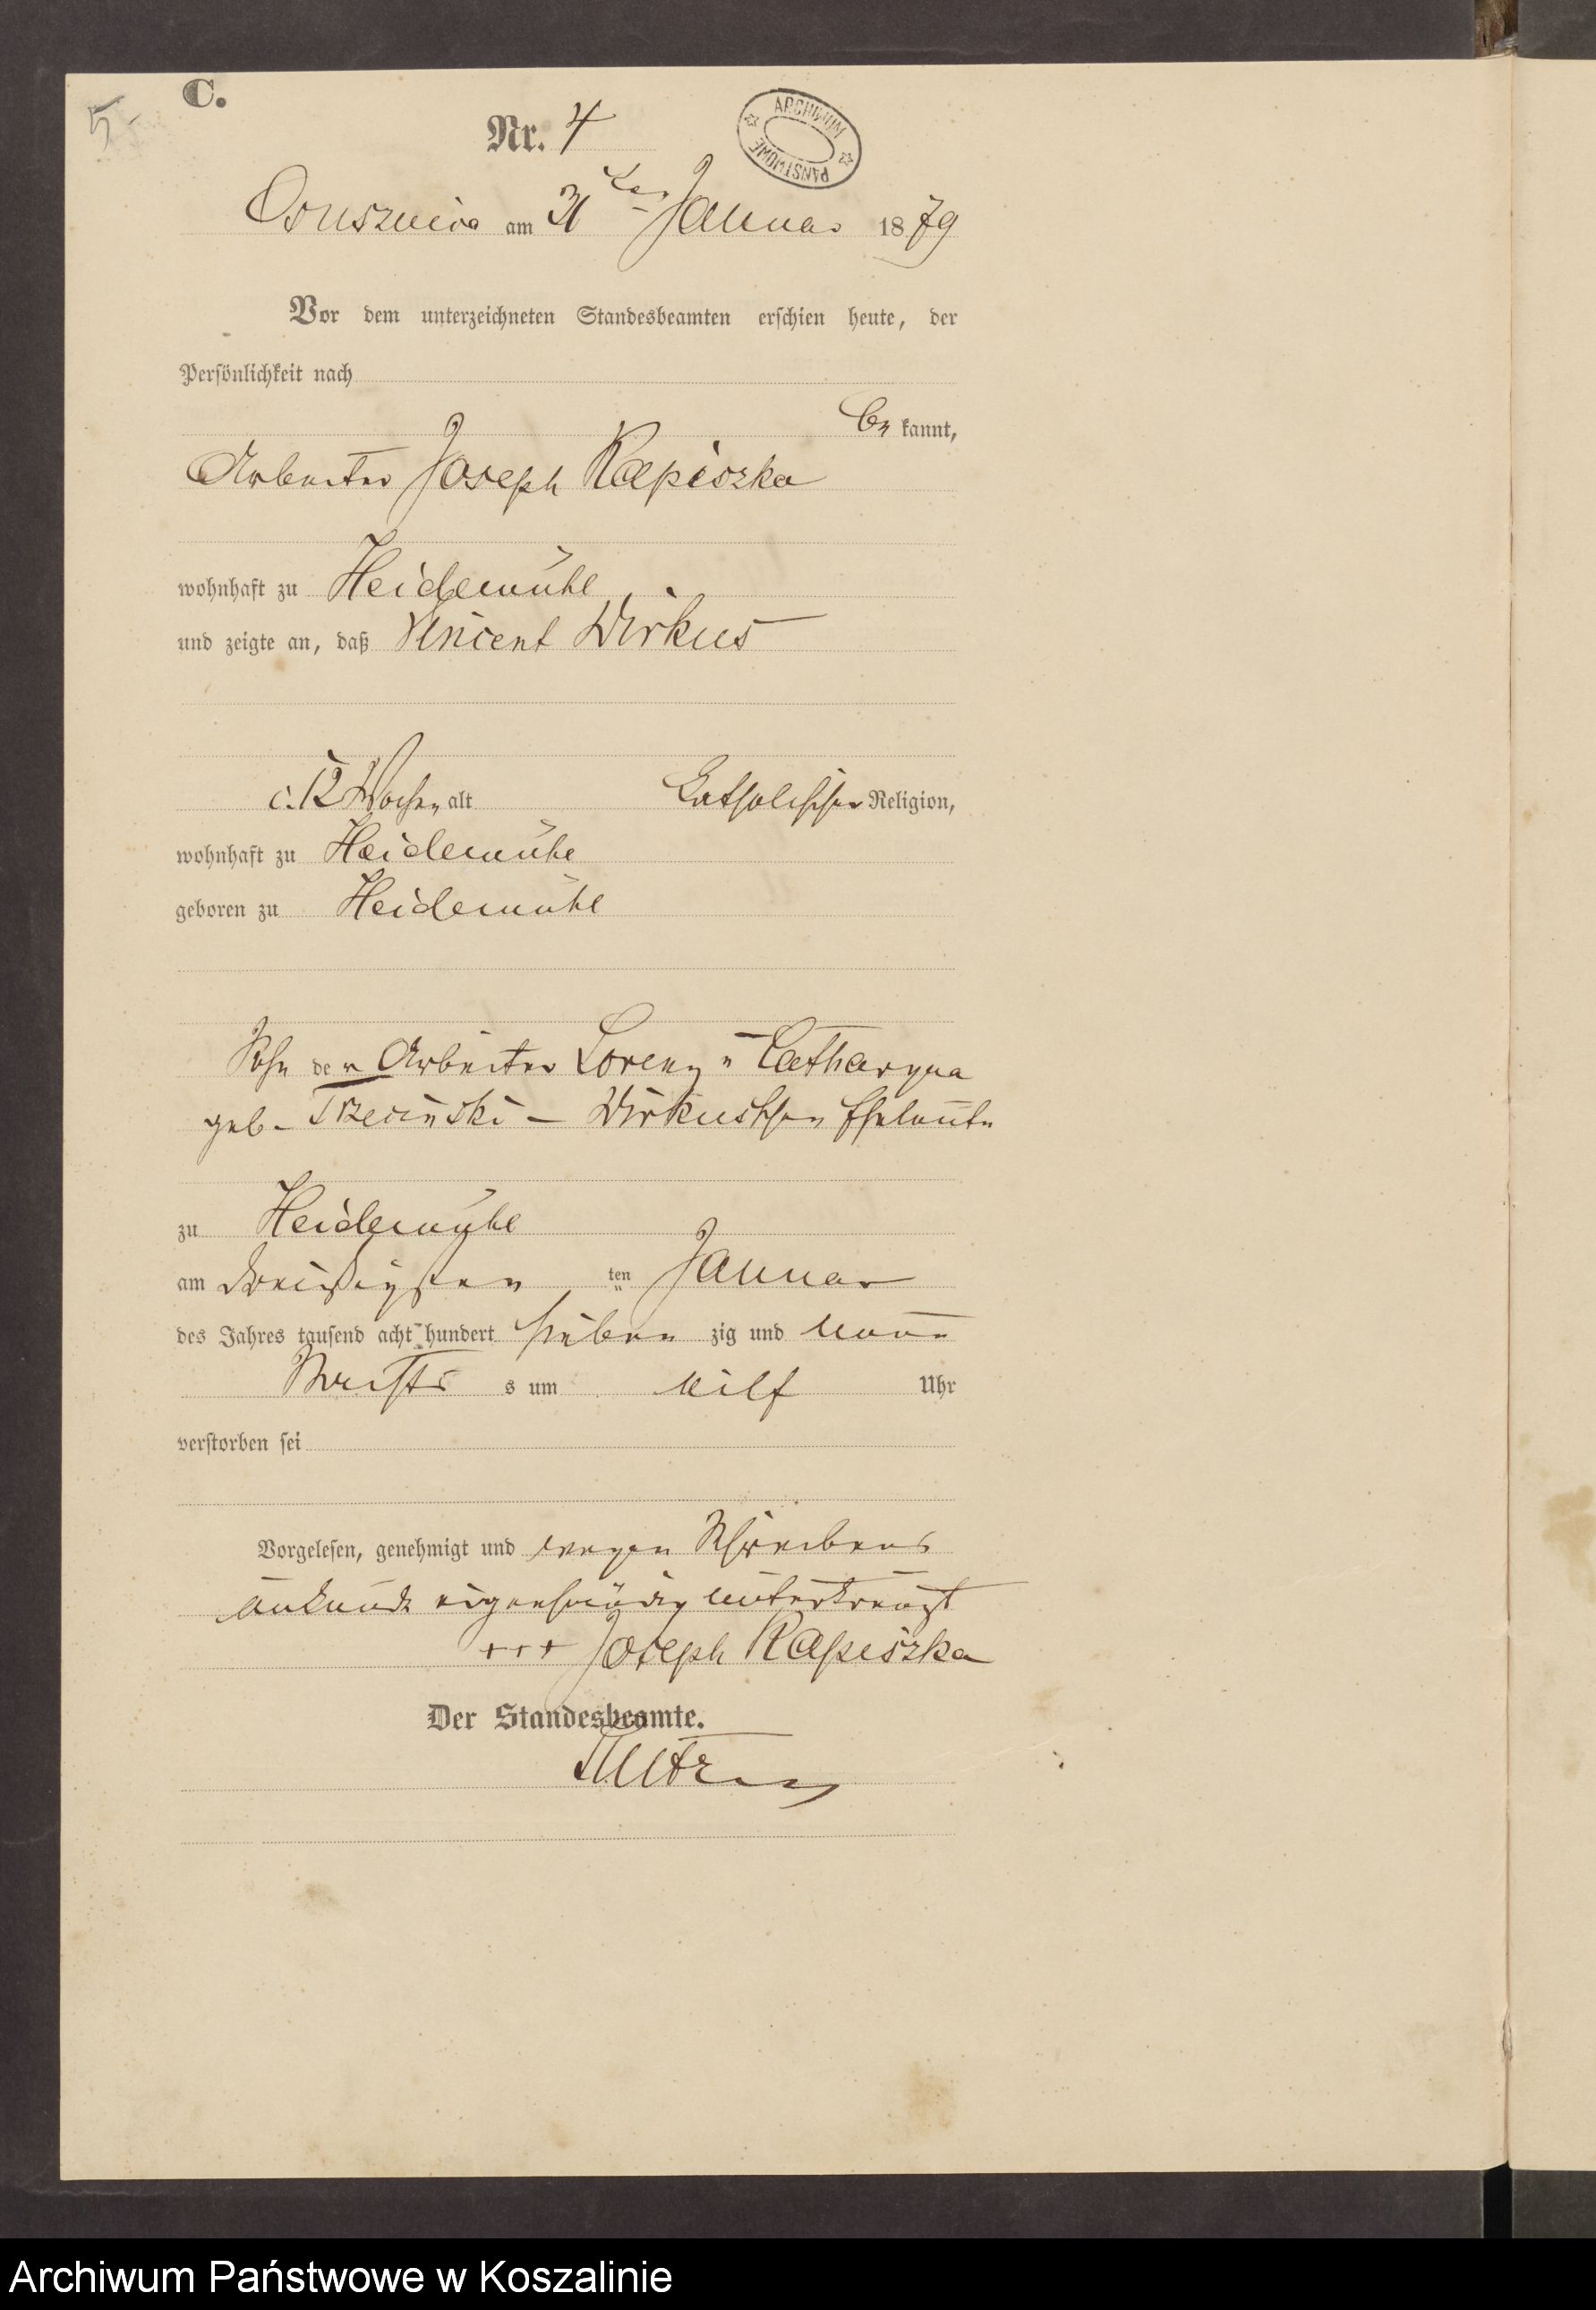 5.
C.
Nr. 4
ARCHIWUM PAŃSTWOWE
Ossusznica am 31ten Januar 1879
Vor dem unterzeichneten Standesbeamten erschien heute, der
Persönlichkeit nach
be kannt,
Arbeiter Joseph Kapiszka
wohnhaft zu Heidemühl
und zeigte an, daß Vincent Wirkus
c. 12 Wochen alt Katholischer Religion,
wohnhaft zu Heidemühl
geboren zu Heidemühl
Sohn der Arbeiter Lorenz u Catharyna
geb. Trzecinski - Wirkusschen Eheleute
zu Heidemühl
am dreißigsten ten Januar
des Jahres tausend acht hundert sieben zig und neun
Nachts s um eilf Uhr
verstorben sei
Vorgelesen, genehmigt und wegen Schreibens
unkunde eigenhändig unterkreuzt
+++ Joseph Kapiszka
Der Standesbeamte.
Archiwum Państwowe w Koszalinie